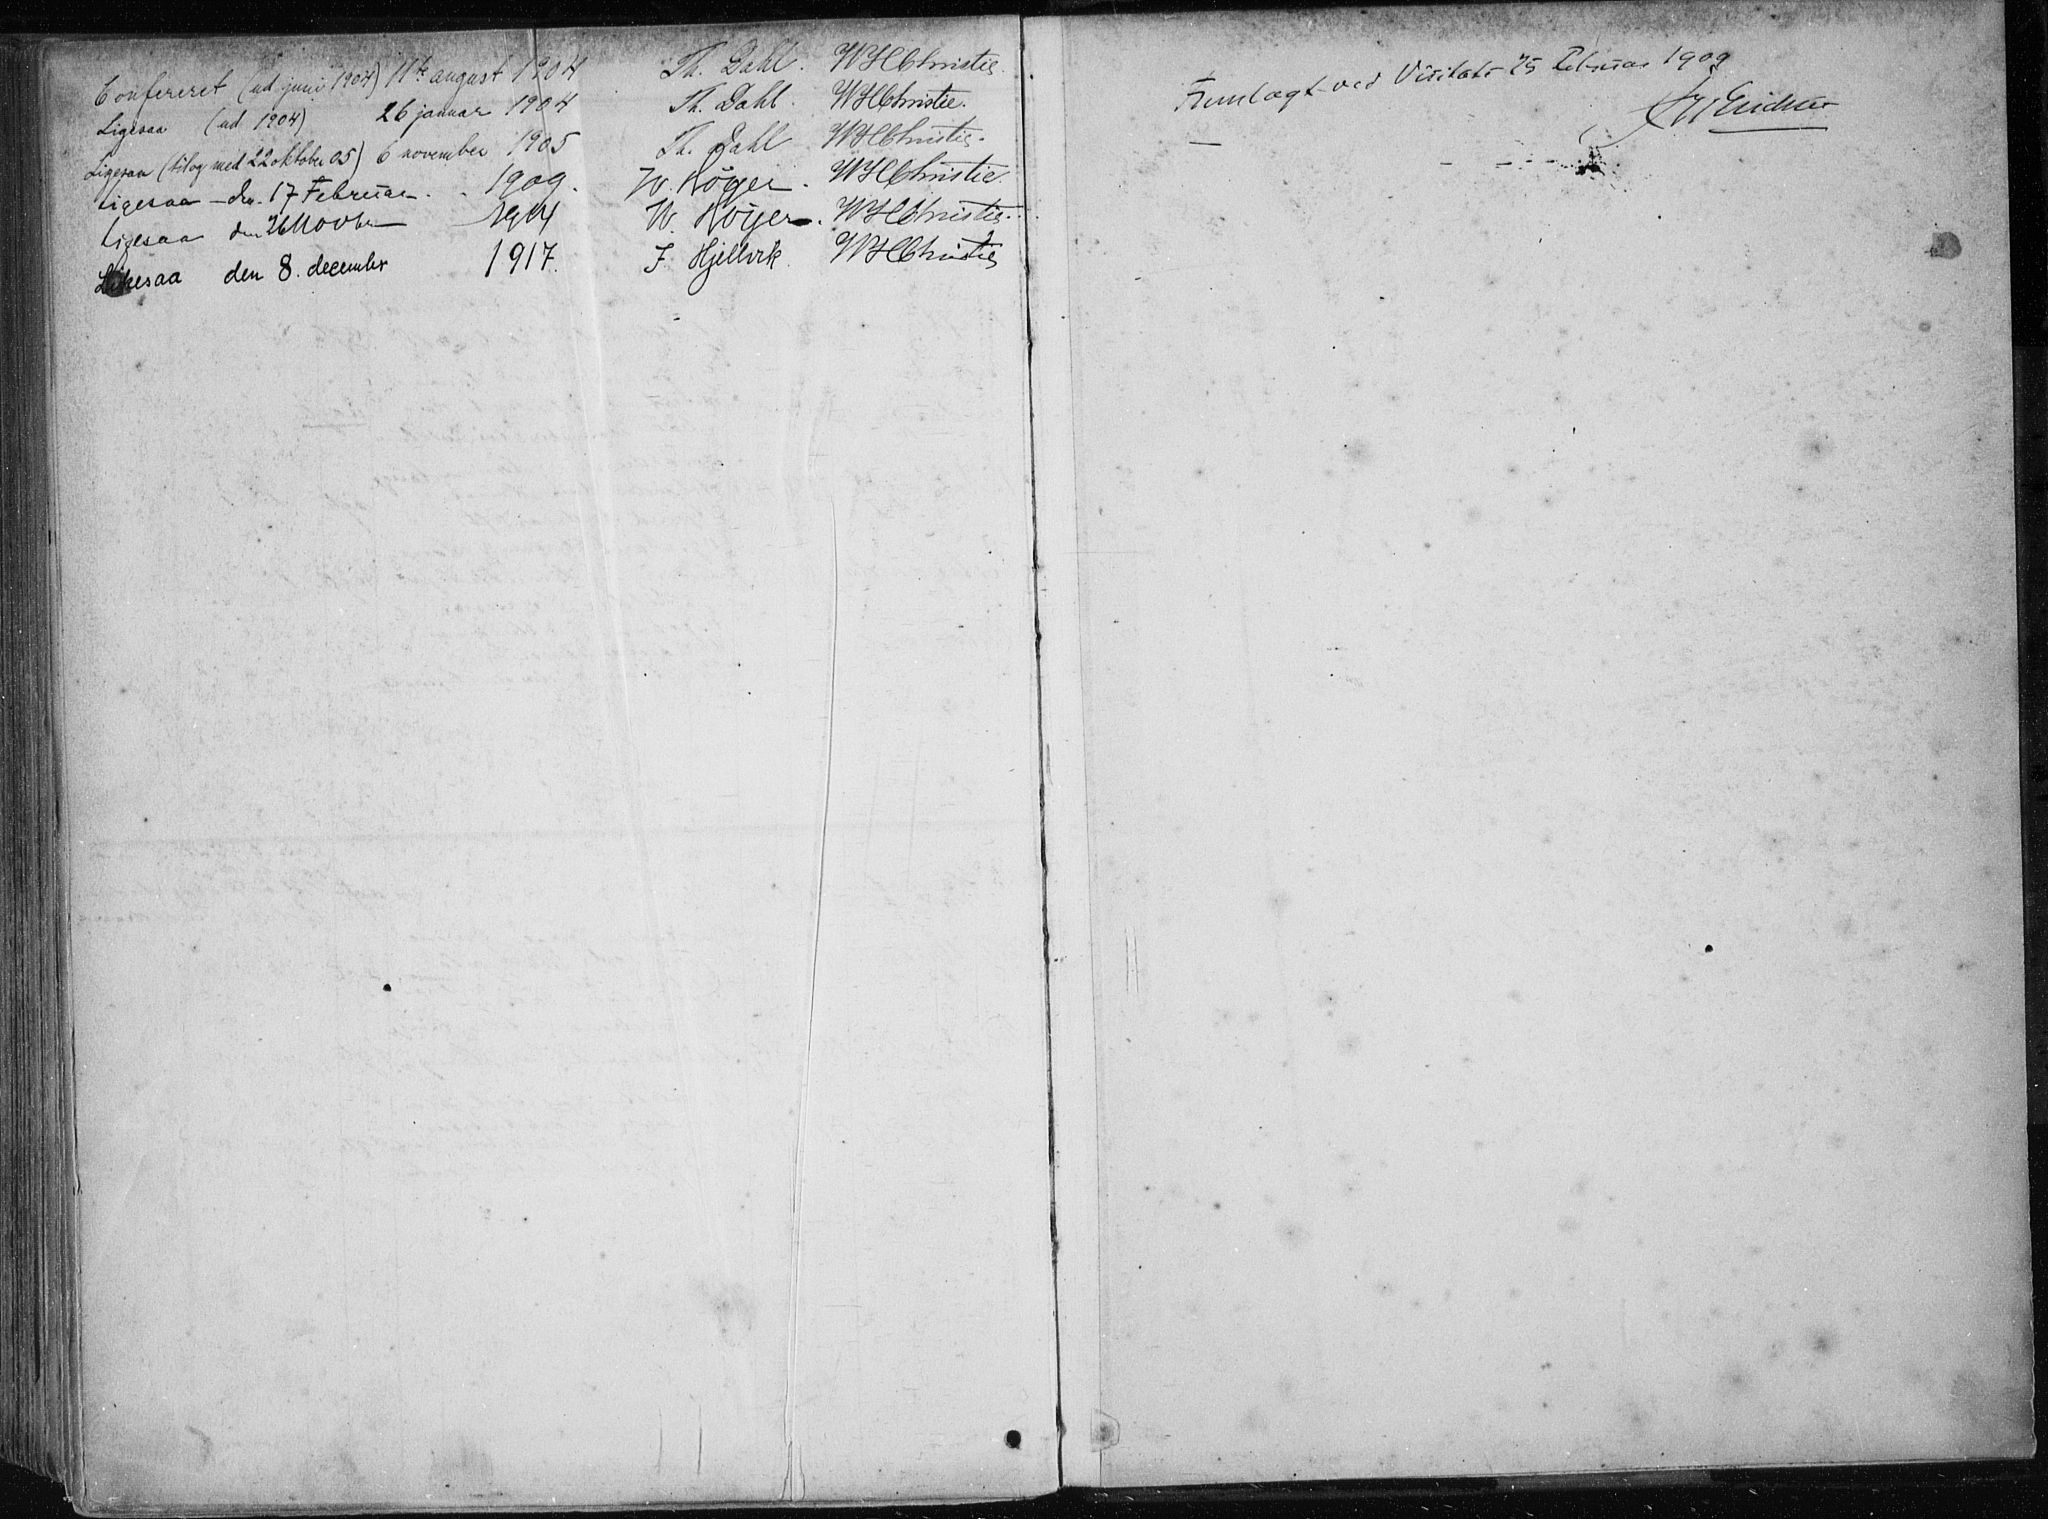 Confereret (ud juni 1904) 11te august 1904 Th. Dahl. WHChristie.
Ligesaa (ud 1904) 26 januar 1904 Th. Dahl. WHChristie.
Ligesaa (til og med 22 oktober 05) 6 november 1905 Th. Dahl WHChristie.
Ligesaa den 17 Februar 1909. W. Høyer. WHChristie.
Ligesaa den 26 Novbr 1914 W. Høyer. WHChristie.
Likesaa den 8. december 1917. J Hjellvik. WHChristie
Fremlagt ved Visitats 25 Februar 1909